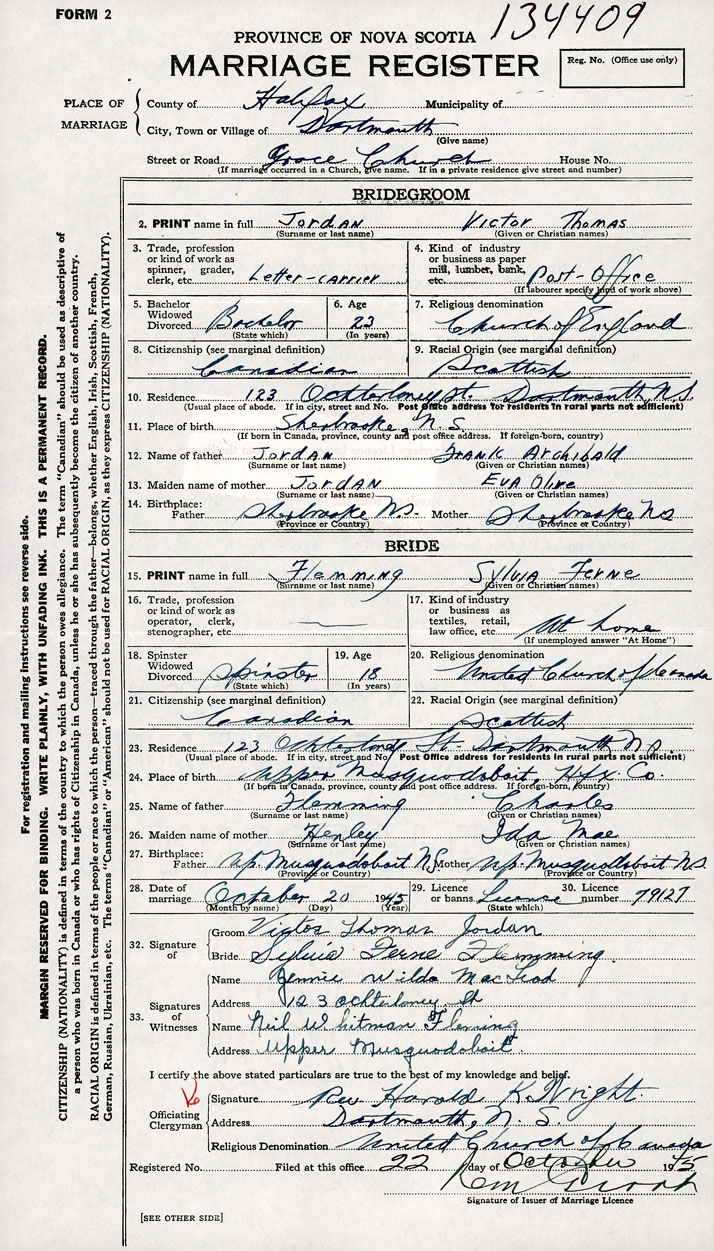 FORM 2
134409
PROVINCE OF NOVA SCOTIA
MARRIAGE REGISTER
Reg. No. (Office use only)
PLACE OF MARRIAGE
County of Halifax Municipality of
City, Town or Village of Dartmouth
(Give name)
Street or Road Grace Church House No.
(If marriage occurred in a Church, give name. If in a private residence give street and number)
BRIDEGROOM
2. PRINT name in full Jordan Victor Thomas
(Surname or last name) (Given or Christian names)
3. Trade, profession or kind of work as spinner, grader, clerk, etc. Letter-carrier
4. Kind of industry or business as paper mill, lumber, bank, etc. Post-Office
(If labourer specify kind of work above)
5. Bachelor Widowed Divorced Bachelor
(State which)
6. Age 23
(In years)
7. Religious denomination Church of England
8. Citizenship (see marginal definition) Canadian
9. Racial Origin (see marginal definition) Scottish
10. Residence 123 Ochterloney St. Dartmouth, N.S.
(Usual place of abode. If in city, street and No. Post Office address for residents in rural parts not sufficient)
11. Place of birth Sherbrooke, N.S.
(If born in Canada, province, county and post office address. If foreign-born, country)
12. Name of father Jordan Frank Archibald
(Surname or last name) (Given or Christian names)
13. Maiden name of mother Jordan Eva Olive
(Surname or last name) (Given or Christian names)
14. Birthplace: Father Sherbrooke N.S. Mother Sherbrooke N.S
(Province or Country) (Province or Country)
BRIDE
15. PRINT name in full Flemming Sylvia Ferne
(Surname or last name) (Given or Christian names)
16. Trade, profession or kind of work as operator, clerk, stenographer, etc.
17. Kind of industry or business as textiles, retail, law office, etc. At home
(If unemployed answer "At Home")
18. Spinster Widowed Divorced Spinster
(State which)
19. Age 18
(In years)
20. Religious denomination United Church of Canada
21. Citizenship (see marginal definition) Canadian
22. Racial Origin (see marginal definition) Scottish
23. Residence 123 Ochterloney St. Dartmouth N.S.
(Usual place of abode. If in city, street and No. Post Office address for residents in rural parts not sufficient)
24. Place of birth Upper Musquodoboit, Hfx Co.
(If born in Canada, province, county and post office address. If foreign-born, country)
25. Name of father Flemming Charles
(Surname or last name) (Given or Christian names)
26. Maiden name of mother Henley Ida Mae
(Surname or last name) (Given or Christian names)
27. Birthplace: Father Up. Musquodoboit N.S Mother Up. Musquodoboit N.S
(Province or Country) (Province or Country)
28. Date of marriage October 20 1945
(Month by name) (Day) (Year)
29. Licence or banns Licence
(State which)
30. Licence number 79127
32. Signature of
Groom Victor Thomas Jordan
Bride Sylvia Ferne Flemming.
33. Signatures of Witnesses
Name Jennie Wilda MacLeod
Address 123 Ochterloney St
Name Neil Whitman Fleming
Address Upper Musquodoboit.
I certify the above stated particulars are true to the best of my knowledge and belief.
Officiating Clergyman
Signature Rev Harold K. Wright.
Address Dartmouth, N. S.
Religious Denomination United Church of Canada
Registered No. Filed at this office 22 day of October 1945
Signature of Issuer of Marriage Licence
[SEE OTHER SIDE]
For registration and mailing instructions see reverse side.
MARGIN RESERVED FOR BINDING. WRITE PLAINLY, WITH UNFADING INK. THIS IS A PERMANENT RECORD.
CITIZENSHIP (NATIONALITY) is defined in terms of the country to which the person owes allegiance. The term "Canadian" should be used as descriptive of
a person who was born in Canada or who has rights of Citizenship in Canada, unless he or she has subsequently become the citizen of another country.
RACIAL ORIGIN is defined in terms of the people or race to which the person—traced through the father—belongs, whether English, Irish, Scottish, French,
German, Russian, Ukrainian, etc. The terms "Canadian" or "American" should not be used for RACIAL ORIGIN, as they express CITIZENSHIP (NATIONALITY).